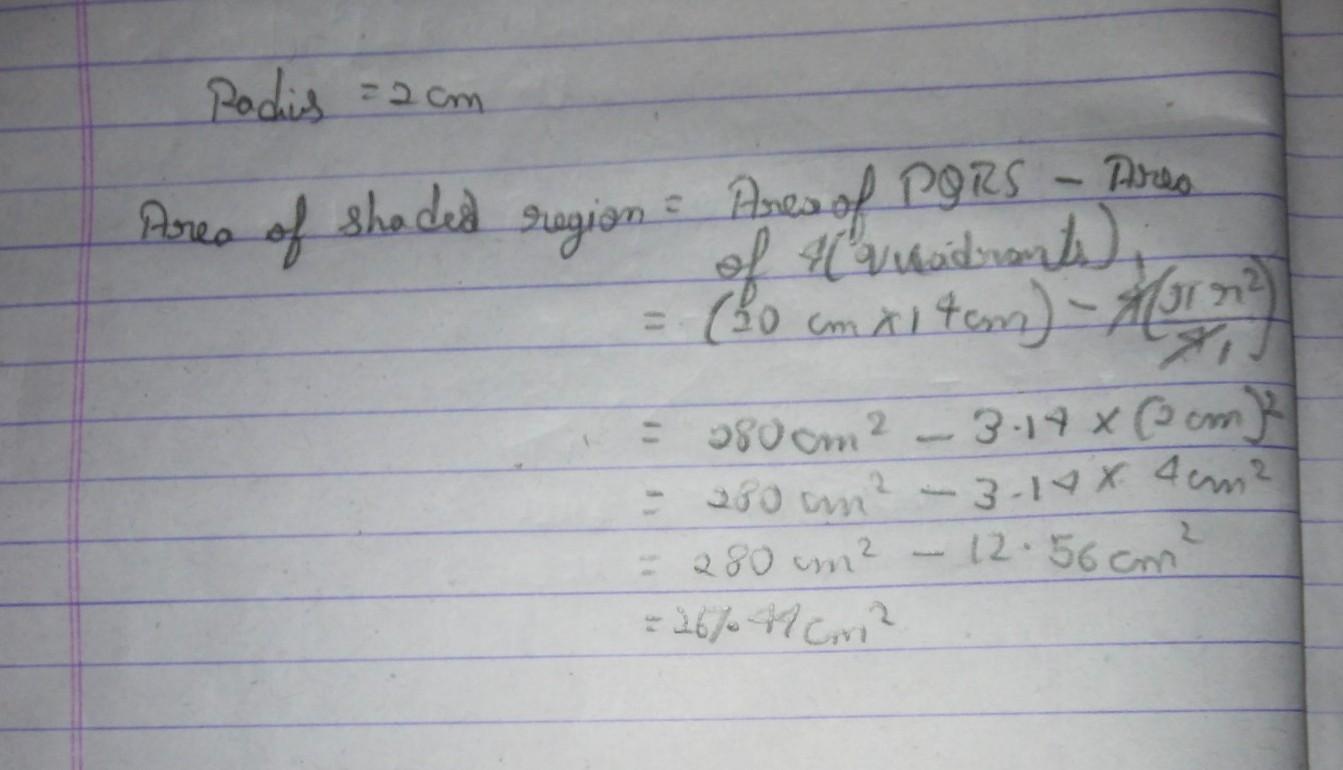 Radius = 2 cm
Area of shaded region = Area of PQRS - Area
of 4(quadrants)
= (20 cm x 14 cm) - 4(πr²/4)1
= 280 cm² - 3.14 x (2 cm)²
= 280 cm² - 3.14 x 4 cm²
= 280 cm² - 12.56 cm²
= 267.44 cm²